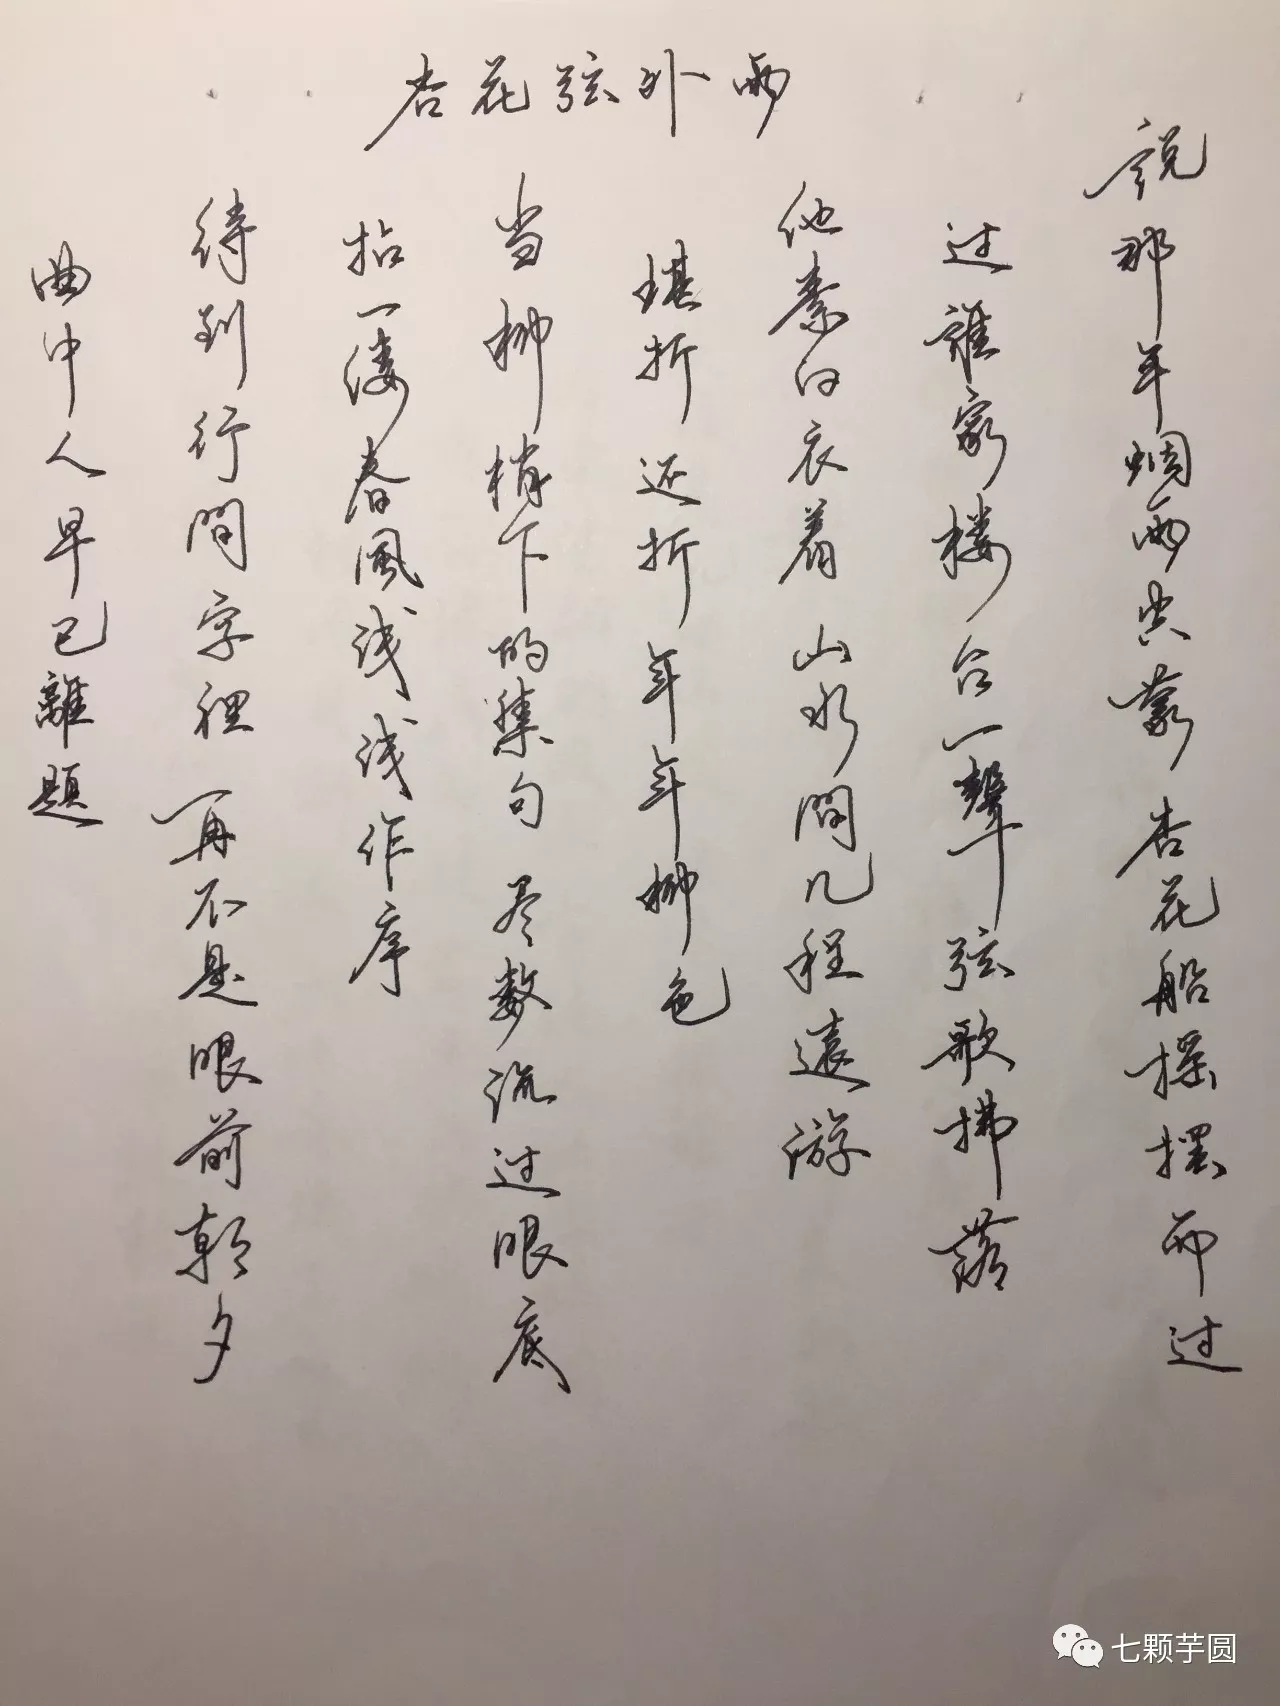 杏花弦外雨
說那年烟雨空蒙 杏花船摇摆而过
过誰家楼台一聲弦歌拂落
他素白衣着 山水間几程遠游
堪折还折年年柳色
当柳梢下的集句 尽数流过眼底
拈一缕春風浅浅作序
待到行間字裡 再不是眼前朝夕
曲中人早已離題
七颗芋圆